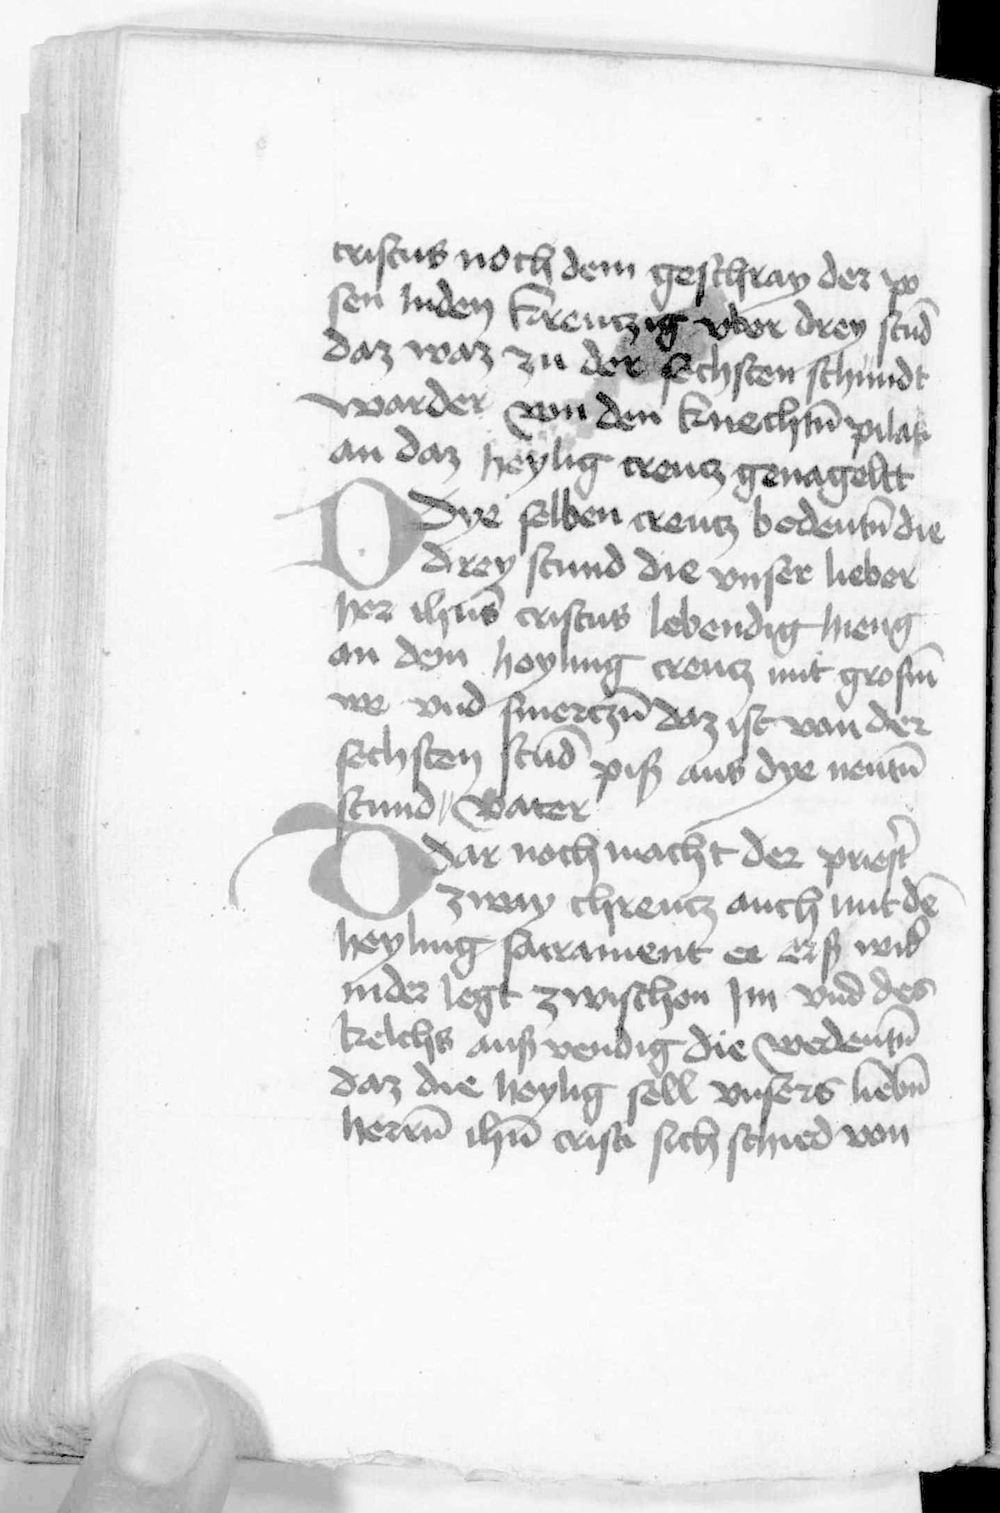 cristus noch dem geschray der po
sen Inden Kreutzig vber drey stūd
daz waz zu der sechsten schundt
warder von den knechtn̄ pilati
an daz heylig creutz genageltt
Dye selben creutz bedeutn̄ die
drey stund die vnser lieber
her ihus̄ cristus lebendig hieng
an dem heyling creutz mit grosm̄
we vnd smerczn̄ daz ist van der
sechsten stūd piß aus dye neutn̄
stund // Vater
Dar noch macht der priest̄
zway chreutz auch mit dē
heyling sacrament er erß wid̄
nider legt zwischen Im vnd des
kelchs auß vendig die wedeutn̄
daz die heylig sell vnsers liebn̄
herrn̄ ihū cristi sich schied von